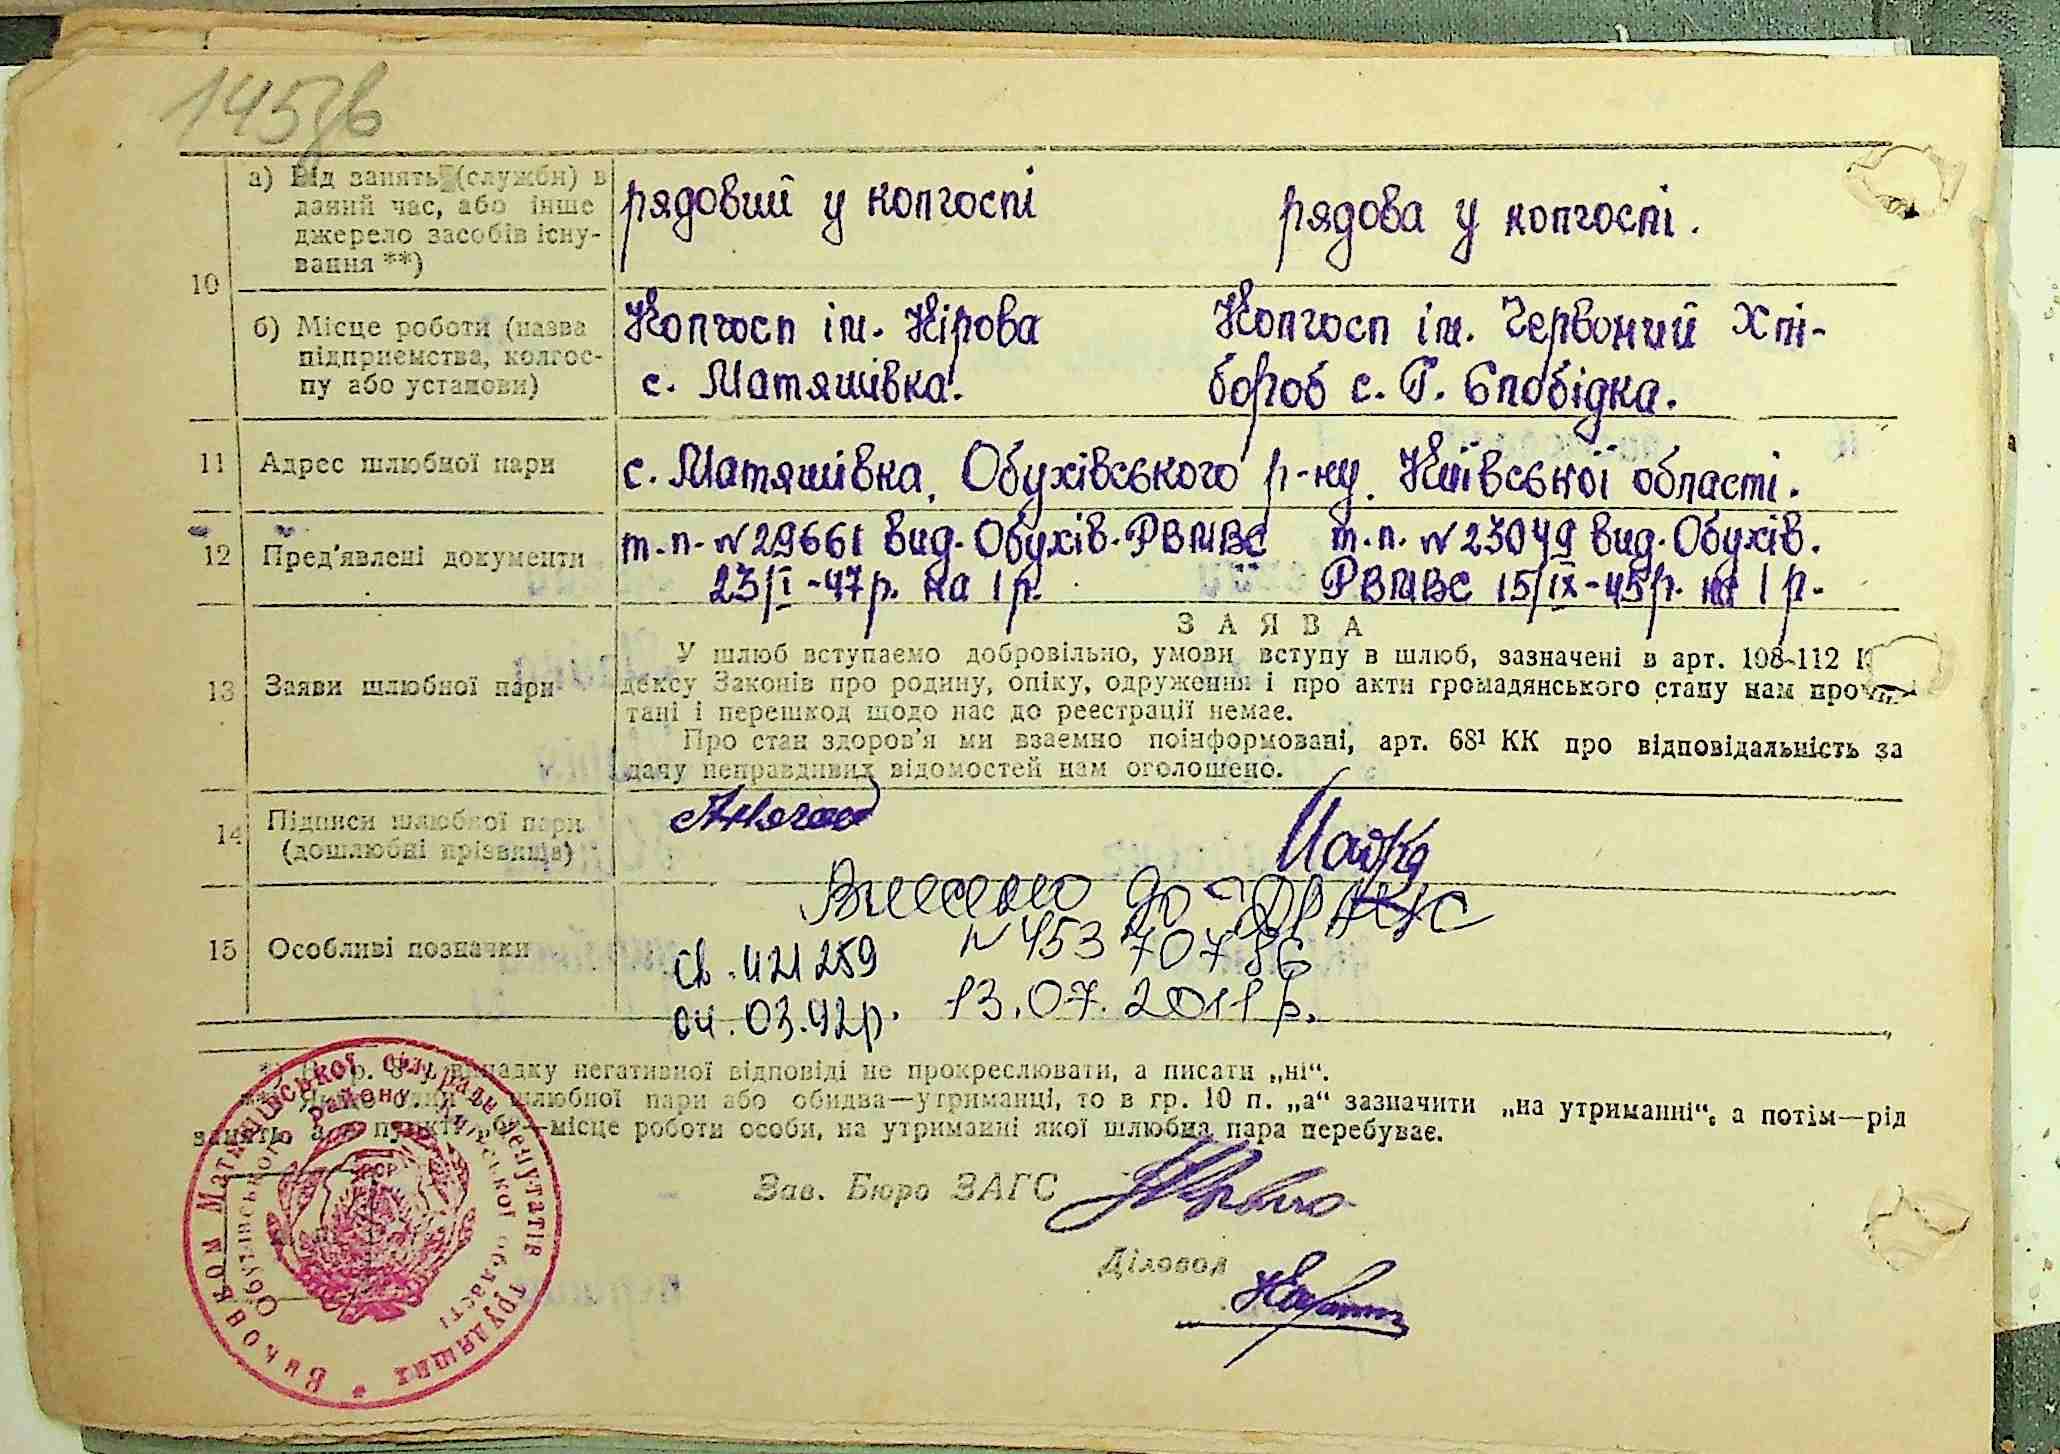 145зв
а) Від занять (служби) в
даний час, або інше
джерело засобів існу-
вання **)
рядовий у колгоспі
рядова у колгоспі.
10
б) Місце роботи (назва
підприємства, колгос-
пу або установи)
Колгосп ім. Кірова
с. Матяшівка.
Колгосп ім. Червоний Хлі-
бороб с. Г. Слобідка.
11 Адрес шлюбної пари
с. Матяшівка, Обухівського р-ну. Київської області.
12 Пред'явлені документи
т.п. N 29661 вид. Обухів. РВМВС
23/I-47р. на 1 р.
т.п. N 23049 вид. Обухів.
РВМВС 15/IX-45р. на 1 р.
ЗАЯВА
13 Заяви шлюбної пари
У шлюб вступаємо добровільно, умови вступу в шлюб, зазначені в арт. 108-112 К
дексу Законів про родину, опіку, одруження і про акти громадянського стану нам прочи
тані і перешкод щодо нас до реєстрації немає.
Про стан здоров'я ми взаємно поінформовані, арт. 68¹ КК про відповідальність за
дачу неправдивих відомостей нам оголошено.
14 Підписи шлюбної пари
(дошлюбні прізвища)
15 Особливі позначки
Внесено до ДРАЦС
N 453 707 86
13.07.2011 р.
св. 421259
04.03.92р.
*) В гр. 8 у випадку негативної відповіді не прокреслювати, а писати „ні“.
** Якщо один з шлюбної пари або обидва—утриманці, то в гр. 10 п. „а“ зазначити „на утриманні“, а потім—рід
занять, а в пункті „б“—місце роботи особи, на утриманні якої шлюбна пара перебуває.
Зав. Бюро ЗАГС
Діловод
Виконком Матяшівської сільради депутатів трудящих
Обухівського району Київської області
УРСР